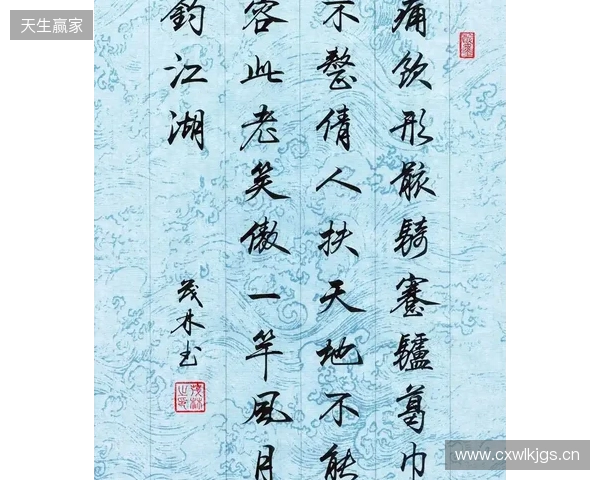 天生赢家
痛饮形骸騎蹇驢葛巾
不整倩人扶天地不能
容此老笑傲一竿風月
釣江湖
茂林书
www.cxwlkjgs.cn